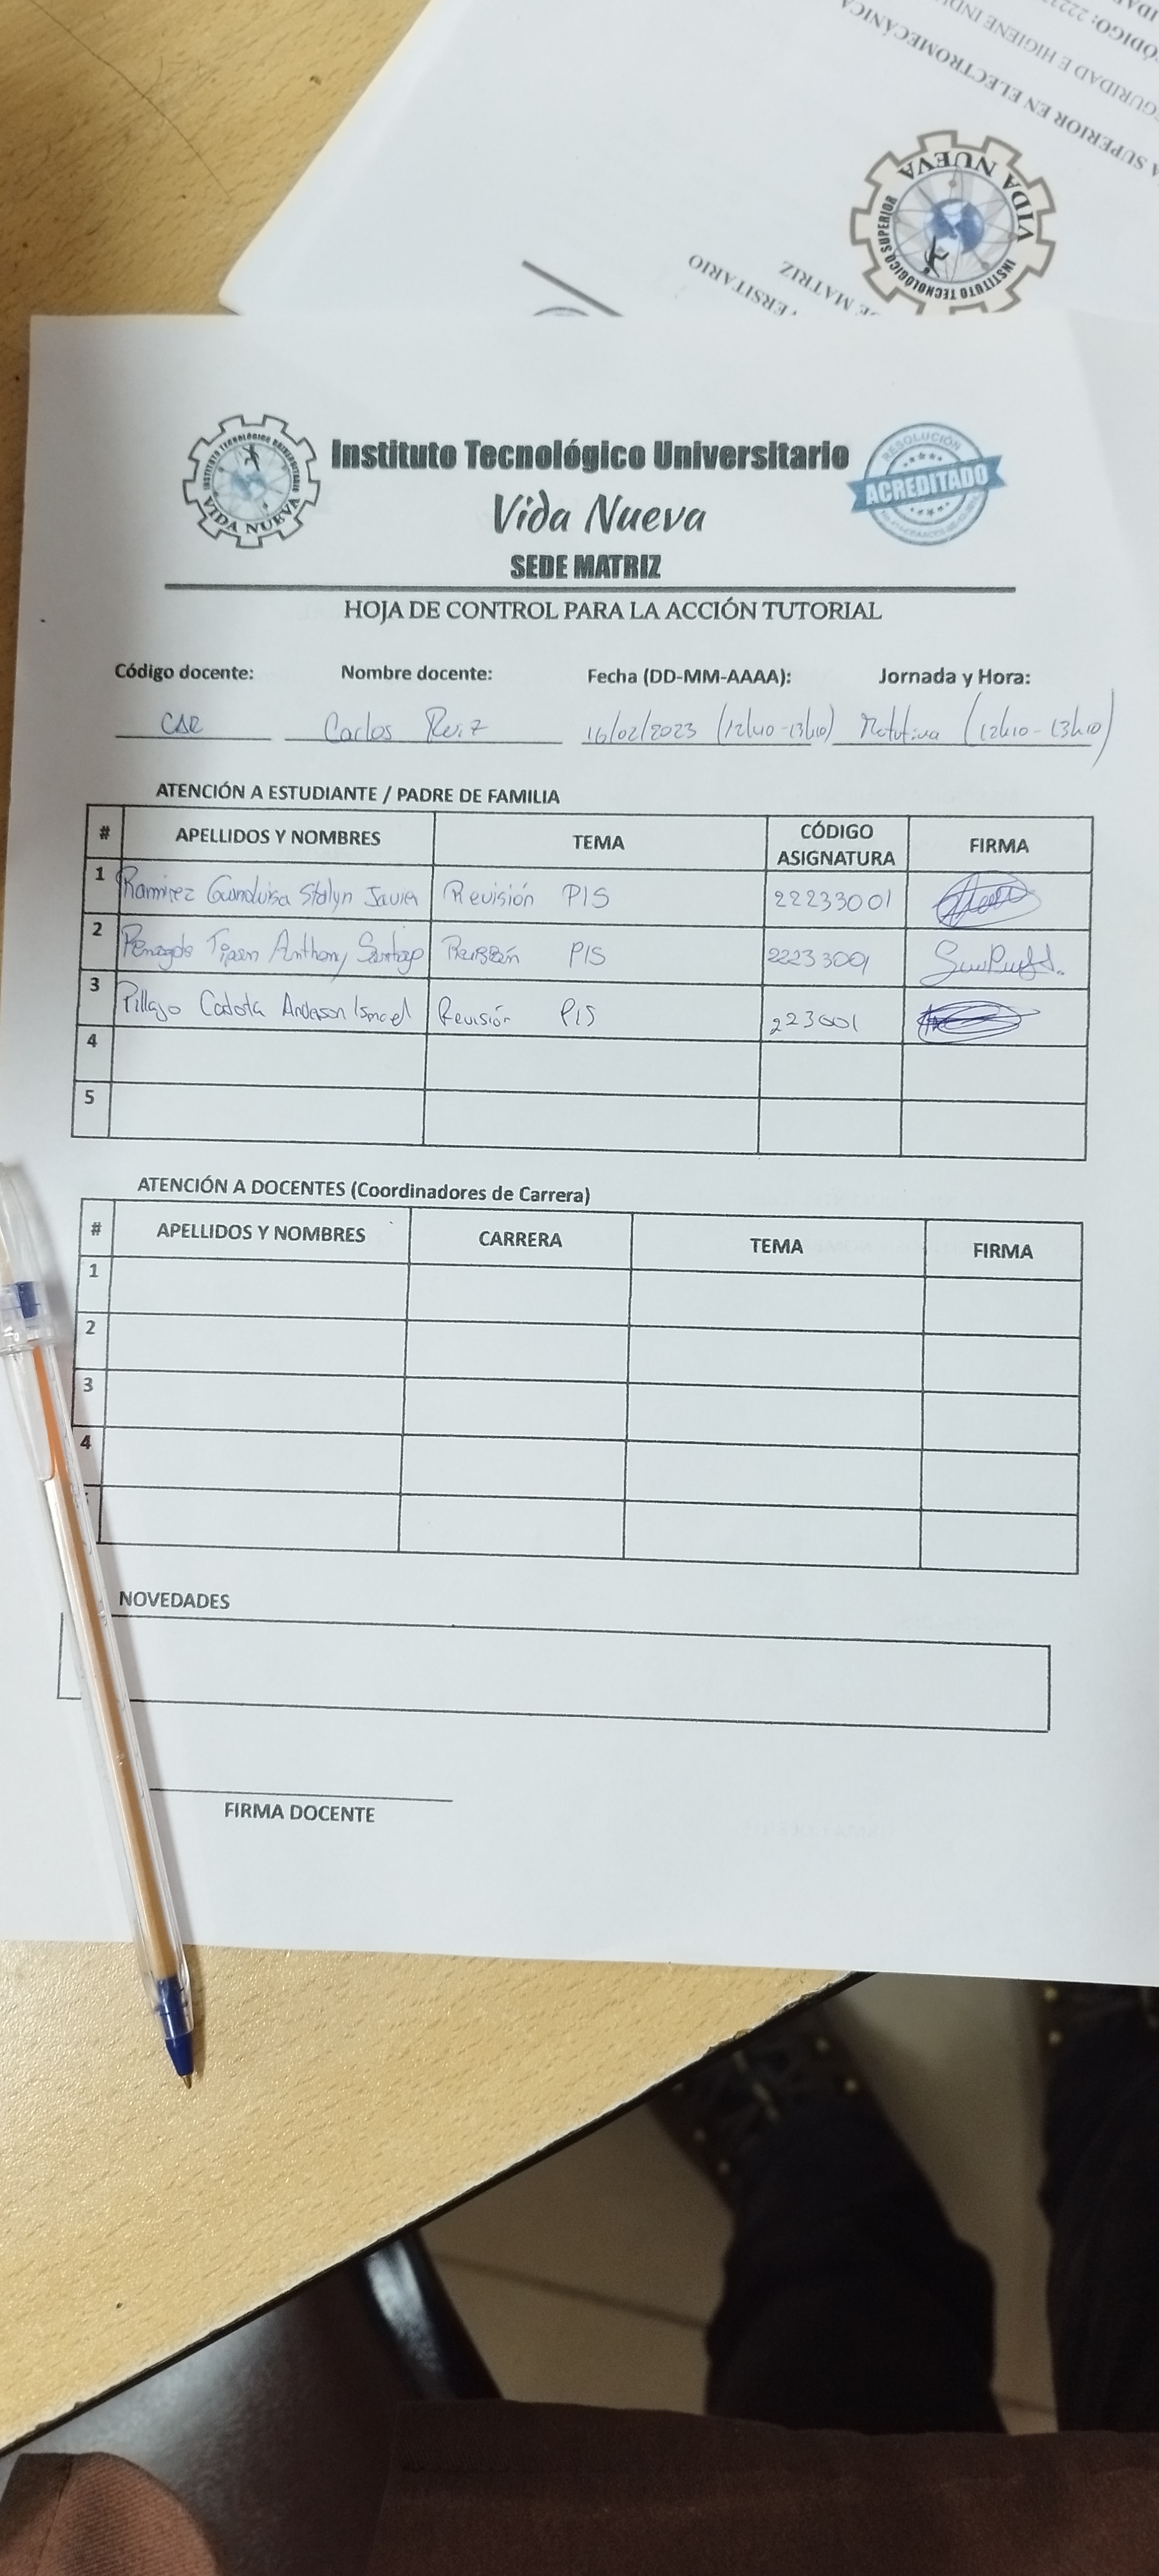 CÓDIGO: 222
SEGURIDAD E HIGIENE INDU
SUPERIOR EN ELECTROMECÁNICA
VIDA NUEVA
INSTITUTO TECNOLÓGICO SUPERIOR
MATRIZ
VERSITARIO
Instituto Tecnológico Universitario
Vida Nueva
SEDE MATRIZ
INSTITUTO TECNOLÓGICO UNIVERSITARIO
VIDA NUEVA
RESOLUCIÓN
ACREDITADO
HOJA DE CONTROL PARA LA ACCIÓN TUTORIAL
Código docente: Nombre docente: Fecha (DD-MM-AAAA): Jornada y Hora:
CAR Carlos Ruiz 16/02/2023 (12h10-13h10) (12h10-13h10)
ATENCIÓN A ESTUDIANTE / PADRE DE FAMILIA
# APELLIDOS Y NOMBRES TEMA CÓDIGO ASIGNATURA FIRMA
1 Ramirez Stalyn Javier Revisión PIS 22233001
2 Anthony Santiago PIS 22233001
3 Pillajo Anderson Ismael Revisión PIS 223001
4
5
ATENCIÓN A DOCENTES (Coordinadores de Carrera)
# APELLIDOS Y NOMBRES CARRERA TEMA FIRMA
1
2
3
4
NOVEDADES
FIRMA DOCENTE